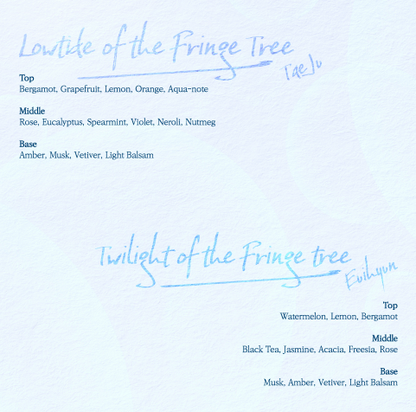 Lowtide of the Fringe Tree
TaeJu
Top
Bergamot, Grapefruit, Lemon, Orange, Aqua-note
Middle
Rose, Eucalyptus, Spearmint, Violet, Neroli, Nutmeg
Base
Amber, Musk, Vetiver, Light Balsam
Twilight of the Fringe tree
Euihyun
Top
Watermelon, Lemon, Bergamot
Middle
Black Tea, Jasmine, Acacia, Freesia, Rose
Base
Musk, Amber, Vetiver, Light Balsam